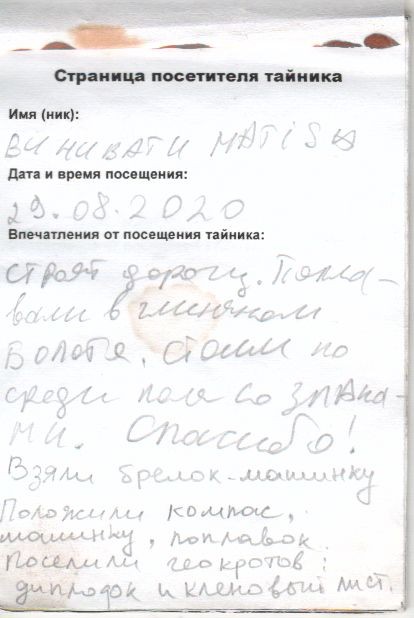 Страница посетителя тайника
Имя (ник):
ВИНИВАТИ MATISA
Дата и время посещения:
29.08.2020
Впечатления от посещения тайника:
Строят дорогу. Попла-
вали в глиняном
Болоте. Стоим по
среди поля со злака-
ми. Спасибо!
Взяли брелок-машинку
Положили компас,
машинку, поплавок.
Поселили геокротов:
диплодок и кленовый лист.